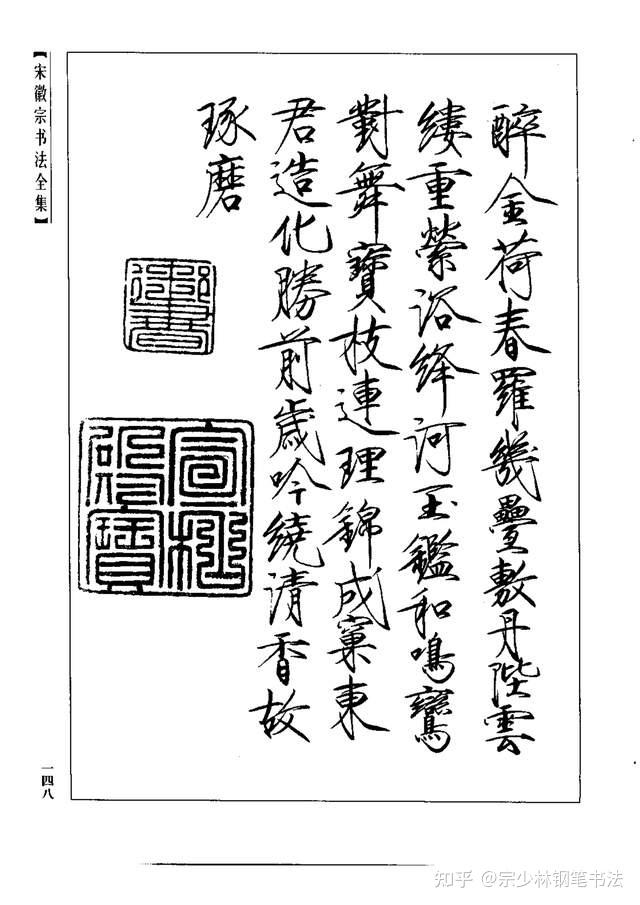 【宋徽宗书法全集】
醉金荷春羅幾疊敷丹陛雲
縷重縈浴絳河玉鑑和鳴鸞
對舞寶枝連理錦成窠東
君造化勝前歲吟繞清香故
琢磨
御書
一四八
知乎 @宗少林钢笔书法